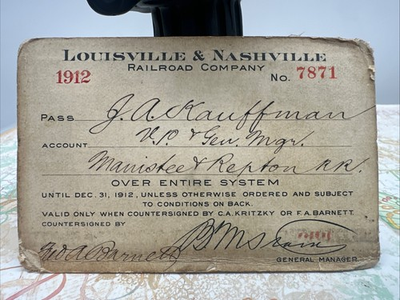 LOUISVILLE & NASHVILLE
RAILROAD COMPANY
1912 No. 7871
PASS J. A. Kauffman
ACCOUNT V. P. & Gen. Mgr.
Manistee & Repton RR.
OVER ENTIRE SYSTEM
UNTIL DEC. 31, 1912, UNLESS OTHERWISE ORDERED AND SUBJECT
TO CONDITIONS ON BACK.
VALID ONLY WHEN COUNTERSIGNED BY C.A. KRITZKY OR F.A. BARNETT.
COUNTERSIGNED BY
A Barnett
GENERAL MANAGER